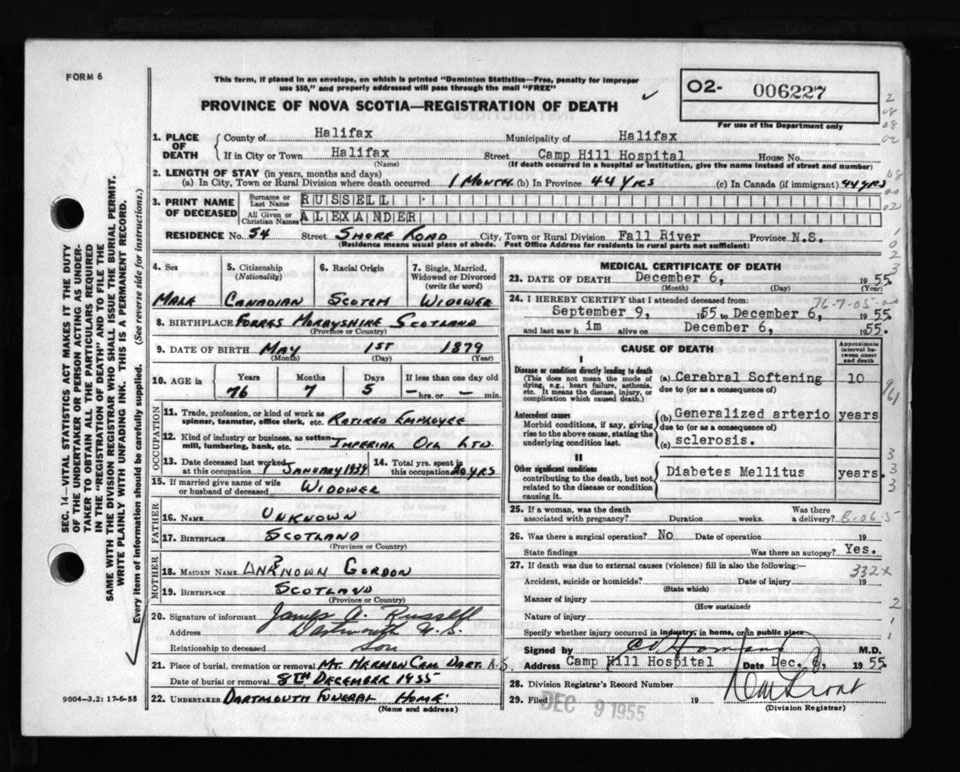 FORM 6
This form, if placed in an envelope, on which is printed "Dominion Statistics—Free, penalty for improper
use $50," and properly addressed will pass through the mail "FREE"
O2- 006227
For use of the Department only
PROVINCE OF NOVA SCOTIA—REGISTRATION OF DEATH
1. PLACE OF DEATH County of Halifax Municipality of Halifax
If in City or Town Halifax Street Camp Hill Hospital House No.
(Name) (If death occurred in a hospital or institution, give the name instead of street and number)
2. LENGTH OF STAY (in years, months and days)
(a) In City, Town or Rural Division where death occurred 1 MONTH (b) In Province 44 YRS (c) In Canada (if immigrant) 44 YRS
3. PRINT NAME OF DECEASED Surname or Last Name RUSSELL
All Given or Christian Names ALEXANDER
RESIDENCE No. 54 Street SHORE ROAD City, Town or Rural Division Fall River Province N.S.
(Residence means usual place of abode. Post Office Address for residents in rural parts not sufficient)
4. Sex 5. Citizenship 6. Racial Origin 7. Single, Married,
(Nationality) Widowed or Divorced
(write the word)
MALE CANADIAN SCOTCH WIDOWER
8. BIRTHPLACE FORRES MORAYSHIRE SCOTLAND
(Province or Country)
9. DATE OF BIRTH MAY 1ST 1879
(Month) (Day) (Year)
10. AGE in Years Months Days If less than one day old
76 7 5 — hrs. or — min.
OCCUPATION
11. Trade, profession, or kind of work as
spinner, teamster, office clerk, etc. RETIRED EMPLOYEE
12. Kind of industry or business, as cotton
mill, lumbering, bank, etc. IMPERIAL OIL LTD
13. Date deceased last worked
at this occupation 1 JANUARY 1939 14. Total yrs. spent in
this occupation 20 YRS
15. If married give name of wife
or husband of deceased WIDOWER
FATHER
16. NAME UNKNOWN
17. BIRTHPLACE SCOTLAND
(Province or Country)
MOTHER
18. MAIDEN NAME ? UNKNOWN GORDON
19. BIRTHPLACE SCOTLAND
(Province or Country)
20. Signature of informant James A. Russell
Address Dartmouth N.S.
Relationship to deceased son
21. Place of burial, cremation or removal MT. HERMON CEM DART. N.S
Date of burial or removal 8TH DECEMBER 1955
22. UNDERTAKER DARTMOUTH FUNERAL HOME
(Name and address)
9004—3.2: 17-6-55
SEC. 14—VITAL STATISTICS ACT MAKES IT THE DUTY
OF THE UNDERTAKER OR PERSON ACTING AS UNDER-
TAKER TO OBTAIN ALL THE PARTICULARS REQUIRED
IN THE "REGISTRATION OF DEATH" AND TO FILE THE
SAME WITH THE DIVISION REGISTRAR WHO SHALL ISSUE THE BURIAL PERMIT.
WRITE PLAINLY WITH UNFADING INK. THIS IS A PERMANENT RECORD.
Every item of information should be carefully supplied. (See reverse side for instructions.)
MEDICAL CERTIFICATE OF DEATH
23. DATE OF DEATH December 6, 1955
(Month) (Day) (Year)
24. I HEREBY CERTIFY that I attended deceased from: 76-7-05-00
September 9, 1955 to December 6, 1955
and last saw h im alive on December 6, 1955.
CAUSE OF DEATH
Approximate
interval between onset
and death
I
Disease or condition directly leading to death
(This does not mean the mode of
dying, e.g., heart failure, asthenia,
etc. It means the disease, injury, or
complication which caused death.)
(a) Cerebral Softening 10
due to (or as a consequence of)
Antecedent causes
Morbid conditions, if any, giving
rise to the above cause, stating the
underlying condition last.
(b) Generalized arterio years
due to (or as a consequence of)
(c) sclerosis.
II
Other significant conditions
contributing to the death, but not
related to the disease or condition
causing it.
Diabetes Mellitus years.
25. If a woman, was the death
associated with pregnancy? Duration weeks. Was there
a delivery? B-06-5
26. Was there a surgical operation? No Date of operation 19
State findings Was there an autopsy? Yes.
27. If death was due to external causes (violence) fill in also the following:— 332x
Accident, suicide or homicide? Date of injury 19
(State which)
Manner of injury
(How sustained)
Nature of injury
Specify whether injury occurred in industry, in home, or in public place
Signed by M.D.
Address Camp Hill Hospital Date Dec. 8, 1955
28. Division Registrar's Record Number
29. Filed DEC 9 1955 19
(Division Registrar)